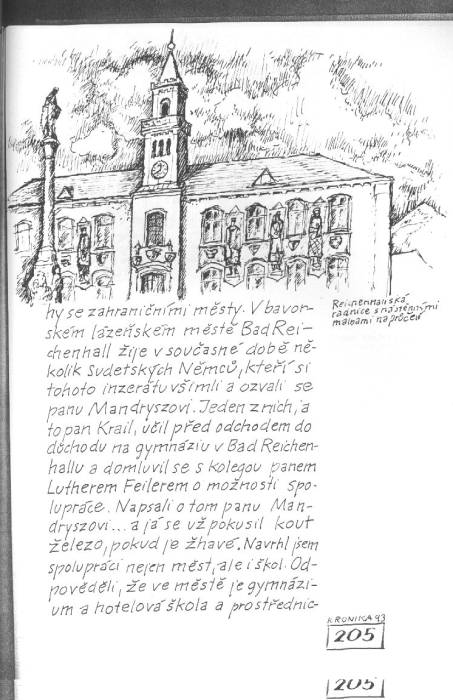 Reichenhallská
radnice s nástěnnými
malbami na průčelí
hy se zahraničními městy. V bavor-
ském lázeňském městě Bad Rei-
chenhall žije v současné době ně-
kolik Sudetských Němců, kteří si
tohoto inzerátu všimli a ozvali se
panu Mandryszovi. Jeden z nich, a
to pan Krail, učil před odchodem do
důchodu na gymnáziu v Bad Reichen-
hallu a domluvil se s kolegou panem
Lutherem Feilerem o možnosti spo-
lupráce. Napsali o tom panu Man-
dryszovi... a já se už pokusil kout
železo, pokud je žhavé. Navrhl jsem
spolupráci nejen měst, ale i škol. Od-
pověděli, že ve městě je gymnázi-
um a hotelová škola a prostřednic-
KRONIKA 93
205
205